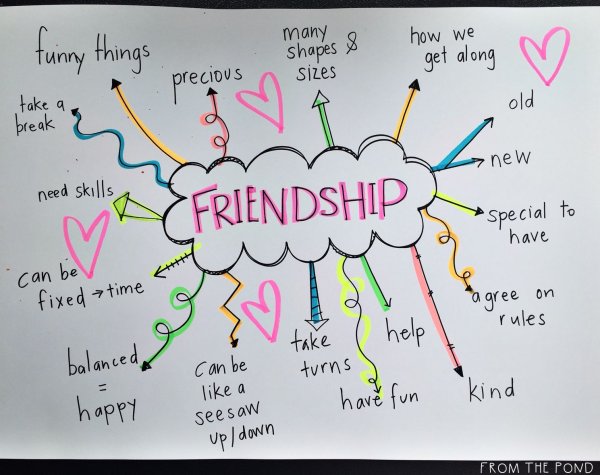 funny things
precious
many
shapes &
sizes
how we
get along
take a
break
old
new
need skills
FRIENDSHIP
special to
have
can be
fixed → time
agree on
rules
balanced
=
happy
can be
like a
seesaw
up/down
take
turns
have fun
help
kind
FROM THE POND